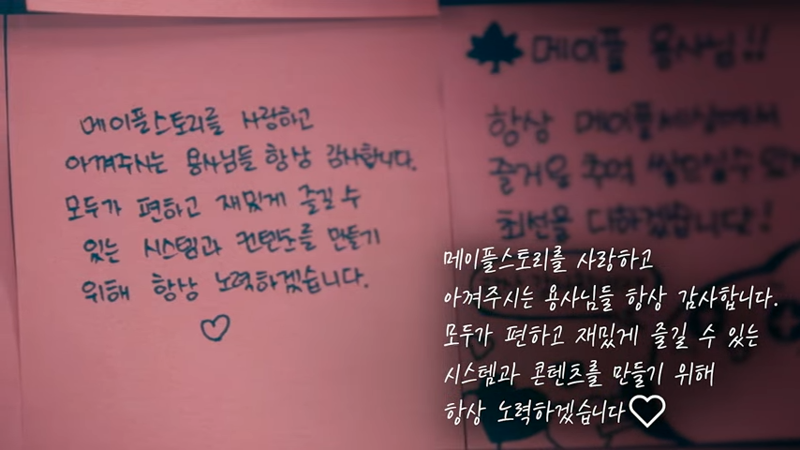 메이플스토리를 사랑하고
아껴주시는 용사님들 항상 감사합니다.
모두가 편하고 재밌게 즐길 수
있는 시스템과 컨텐츠를 만들기
위해 항상 노력하겠습니다.
♡
메이플 용사님!!
항상 메이플세상에서
즐거운 추억
최선을 다하겠습니다!
메이플스토리를 사랑하고
아껴주시는 용사님들 항상 감사합니다.
모두가 편하고 재밌게 즐길 수 있는
시스템과 콘텐츠를 만들기 위해
항상 노력하겠습니다♡